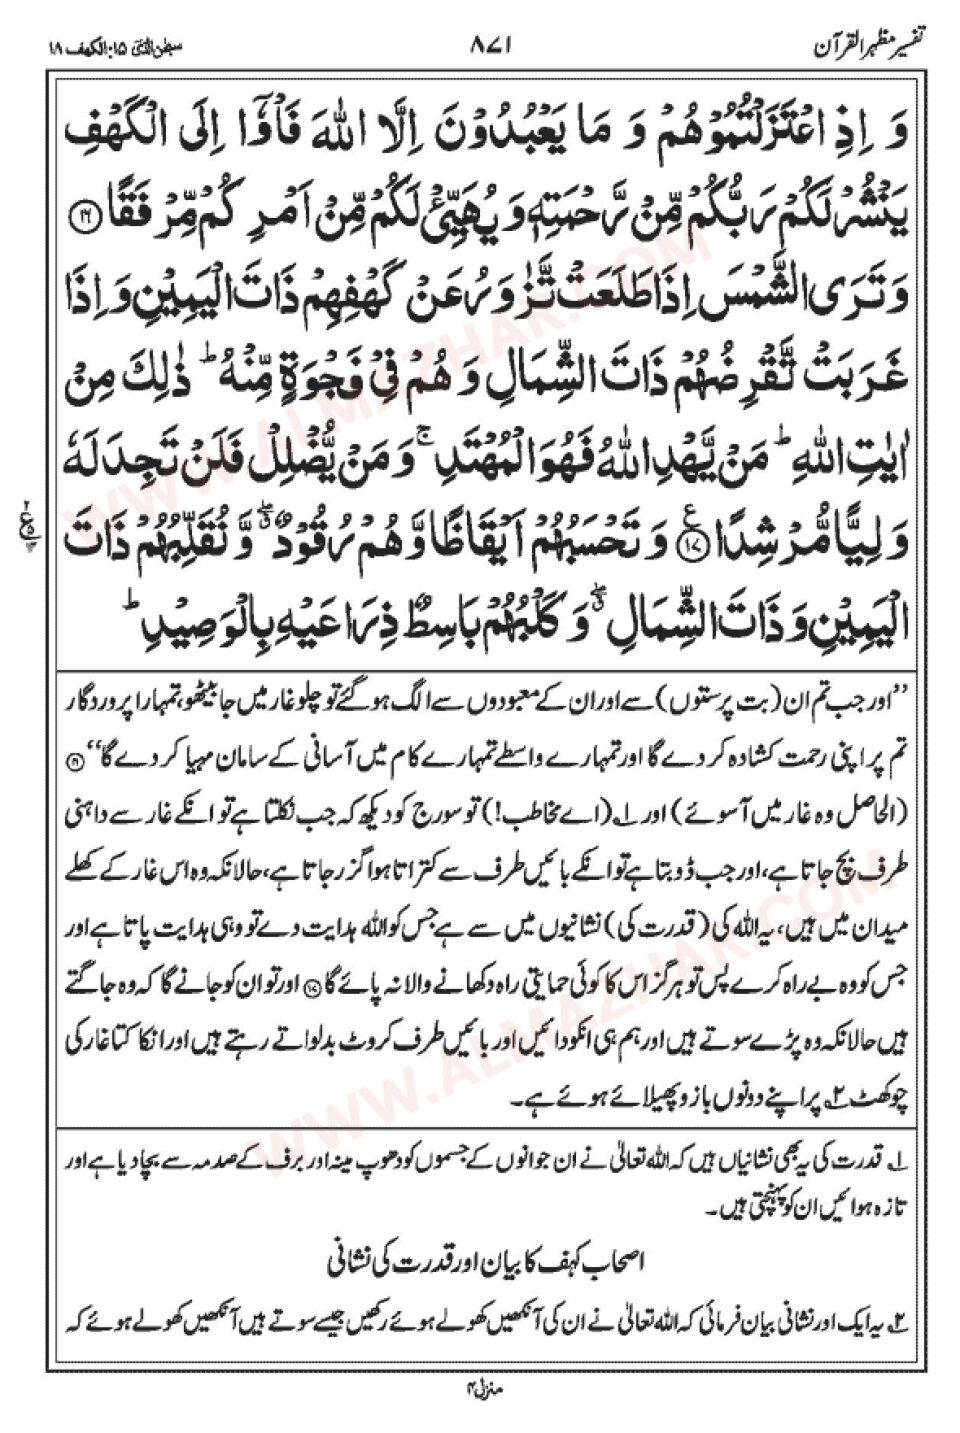 تفسیر مظہر القرآن
۸۷۱
سبحٰن الذی ۱۵: الکھف ۱۸
وَ اِذِ اعْتَزَلْتُمُوْهُمْ وَ مَا يَعْبُدُوْنَ اِلَّا اللّٰهَ فَاْوٗۤا اِلَى الْكَهْفِ
يَنْشُرْ لَكُمْ رَبُّكُمْ مِّنْ رَّحْمَتِهٖ وَ يُهَيِّئْ لَكُمْ مِّنْ اَمْرِ كُمْ مِّرْ فَقًا ۱۶
وَ تَرَى الشَّمْسَ اِذَا طَلَعَتْ تَّزٰوَرُ عَنْ كَهْفِهِمْ ذَاتَ الْيَمِيْنِ وَ اِذَا
غَرَبَتْ تَّقْرِضُهُمْ ذَاتَ الشِّمَالِ وَ هُمْ فِيْ فَجْوَةٍ مِّنْهُ ؕ ذٰلِكَ مِنْ
اٰيٰتِ اللّٰهِ ؕ مَنْ يَّهْدِ اللّٰهُ فَهُوَ الْمُهْتَدِ ۚ وَ مَنْ يُّضْلِلْ فَلَنْ تَجِدَ لَهٗ
وَلِيًّا مُّرْشِدًا ۱۷ ع وَ تَحْسَبُهُمْ اَيْقَاظًا وَّ هُمْ رُقُوْدٌ ۖ ق وَّ نُقَلِّبُهُمْ ذَاتَ
الْيَمِيْنِ وَ ذَاتَ الشِّمَالِ ۖ ق وَ كَلْبُهُمْ بَاسِطٌ ذِرَاعَيْهِ بِالْوَصِيْدِ ؕ
’’اور جب تم ان (بت پرستوں) سے اور ان کے معبودوں سے الگ ہو گئے تو چلو غار میں جا بیٹھو، تمہارا پروردگار
تم پر اپنی رحمت کشادہ کر دے گا اور تمہارے واسطے تمہارے کام میں آسانی کے سامان مہیا کر دے گا‘‘ ۱۶
(الحاصل وہ غار میں آسوئے) اور ۱؎ (اے مخاطب!) تو سورج کو دیکھ کہ جب نکلتا ہے تو انکے غار سے داہنی
طرف بچ جاتا ہے، اور جب ڈوبتا ہے تو انکے بائیں طرف سے کتراتا ہوا گزر جاتا ہے، حالانکہ وہ اس غار کے کھلے
میدان میں ہیں، یہ اللہ کی (قدرت کی) نشانیوں میں سے ہے جس کو اللہ ہدایت دے تو وہی ہدایت پاتا ہے اور
جس کو وہ بے راہ کرے پس تو ہرگز اس کا کوئی حمایتی راہ دکھانے والا نہ پائے گا ۱۷ اور تو ان کو جانے گا کہ وہ جاگتے
ہیں حالانکہ وہ پڑے سوتے ہیں اور ہم ہی انکو دائیں اور بائیں طرف کروٹ بدلواتے رہتے ہیں اور انکا کتا غار کی
چوکھٹ ۲؎ پر اپنے دونوں بازو پھیلائے ہوئے ہے۔
۱؎ قدرت کی یہ بھی نشانیاں ہیں کہ اللہ تعالیٰ نے ان جوانوں کے جسموں کو دھوپ مینہ اور برف کے صدمہ سے بچا دیا ہے اور
تازہ ہوائیں ان کو پہنچتی ہیں۔
اصحاب کہف کا بیان اور قدرت کی نشانی
۲؎ یہ ایک اور نشانی بیان فرمائی کہ اللہ تعالیٰ نے ان کی آنکھیں کھولے ہوئے رکھیں جیسے سوتے ہیں آنکھیں کھولے ہوئے کہ
منزل ۴
WWW.ALMAZHAR.COM
WWW.ALMAZHAR.COM